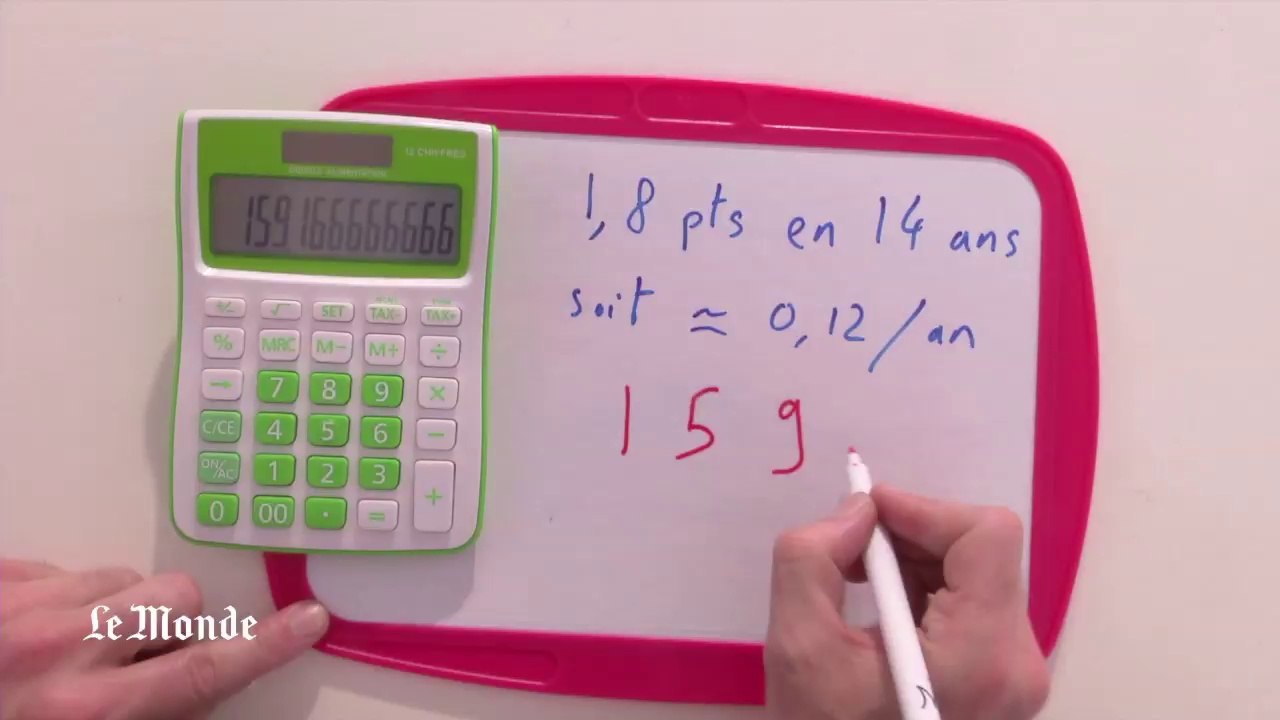 12 CHIFFRES
DOUBLE ALIMENTATION
159166666666
+/- √ SET TAX- TAX+
% MRC M- M+ ÷
→ 7 8 9 ×
C/CE 4 5 6 -
ON/AC 1 2 3 +
0 00 . =
1,8 pts en 14 ans
soit ≈ 0,12/an
159
Le Monde